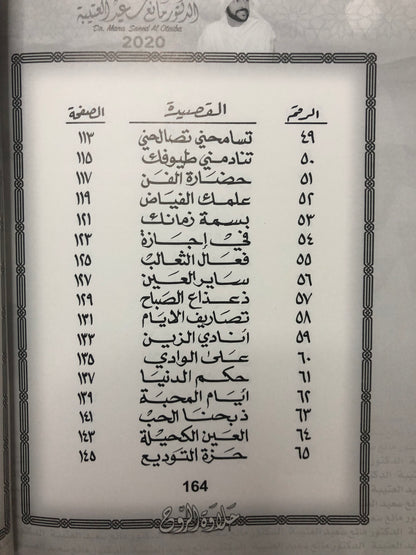 الدكتور مانع سعيد العتيبة
Dr. Mana Saeed Al Otaiba
2020
الرقم القصيدة الصفحة
٤٩ تسامحني تصالحني ١١٣
٥٠ تنادمني طيوفك ١١٥
٥١ حضارة الفن ١١٧
٥٢ علمك الفياض ١١٩
٥٣ بسمة زمانك ١٢١
٥٤ في إجازة ١٢٣
٥٥ فعال الثعالب ١٢٥
٥٦ ساير العين ١٢٧
٥٧ ذعذاع الصباح ١٢٩
٥٨ تصاريف الايام ١٣١
٥٩ انادي الزين ١٣٣
٦٠ على الوادي ١٣٥
٦١ حكم الدنيا ١٣٧
٦٢ ايام المحبة ١٣٩
٦٣ ذبحنا الحب ١٤١
٦٤ العين الكحيلة ١٤٣
٦٥ حزة التوديع ١٤٥
164
حلاوة الروح